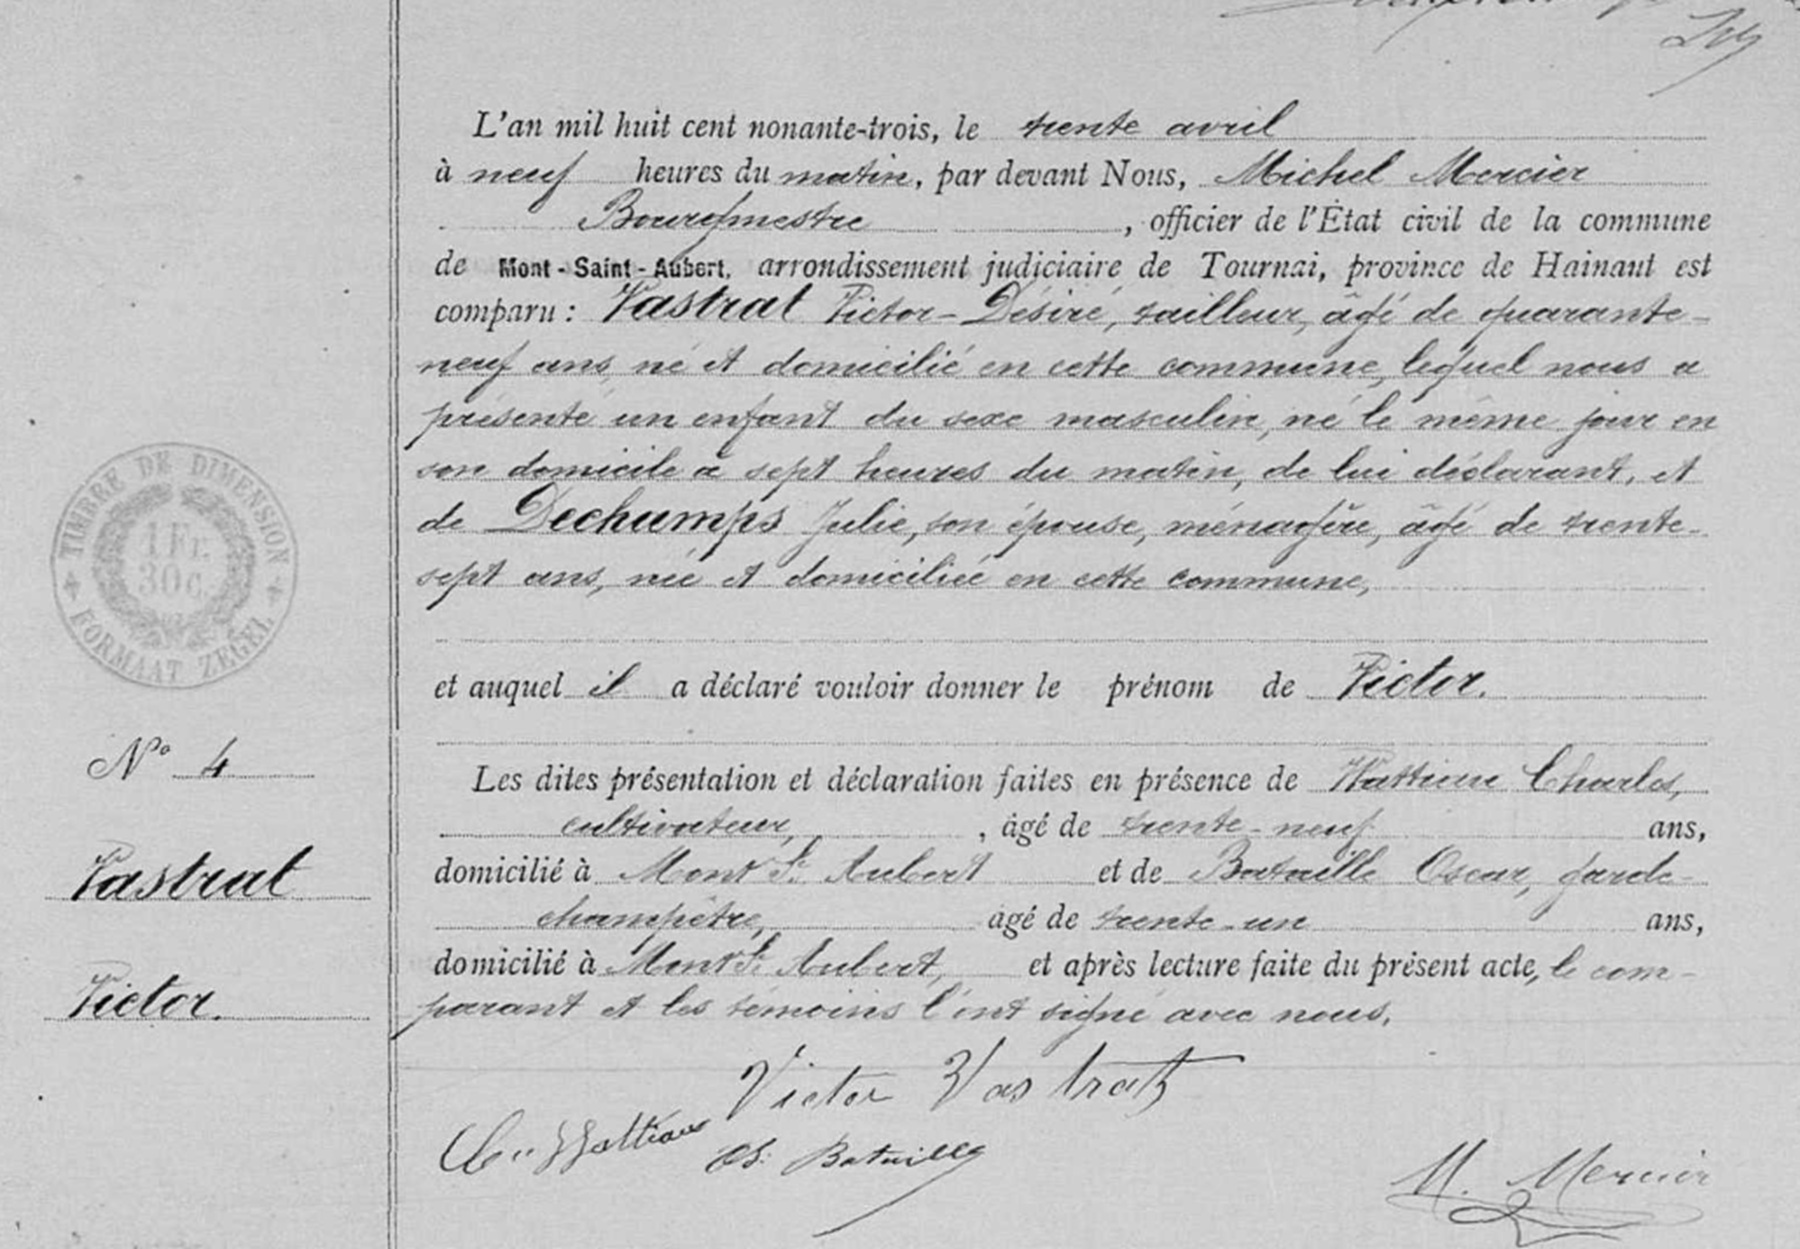 L'an mil huit cent nonante-trois, le trente avril
à neuf heures du matin, par devant Nous, Michel Mercier
Bourgmestre, officier de l'État civil de la commune
de Mont-Saint-Aubert, arrondissement judiciaire de Tournai, province de Hainaut est
comparu : Vastrat Victor-Désiré, tailleur, âgé de quarante-
neuf ans, né et domicilié en cette commune, lequel nous a
présenté un enfant du sexe masculin, né le même jour en
son domicile à sept heures du matin, de lui déclarant, et
de Dechamps Julie, son épouse, ménagère, âgé de trente-
sept ans, née et domiciliée en cette commune,
TIMBRE DE DIMENSION
1 Fr.
30 c.
FORMAAT ZEGEL
et auquel il a déclaré vouloir donner le prénom de Victor.
N° 4
Les dites présentation et déclaration faites en présence de Wattiau Charles,
cultivateur, , âgé de trente-neuf ans,
Vastrat
domicilié à Mont St Aubert et de Bataille Oscar, garde-
champêtre, âgé de trente-un ans,
domicilié à Mont St Aubert, et après lecture faite du présent acte, le com-
Victor.
parant et les témoins l'ont signé avec nous.
Victor Vastrat
Ch. Wattiau
Os. Bataille
M. Mercier